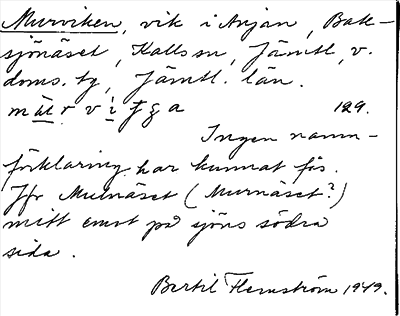 Murviken, vik i Anjan, Bak-
sjönäset, Kalls sn, Jämtl. v.
doms. tg, Jämtl. län.
129.
Ingen namn-
förklaring har kunnat fås.
Jfr Mulnäset (Murnäset?)
mitt emot på sjöns södra
sida.
Bertil Flemström 1949.